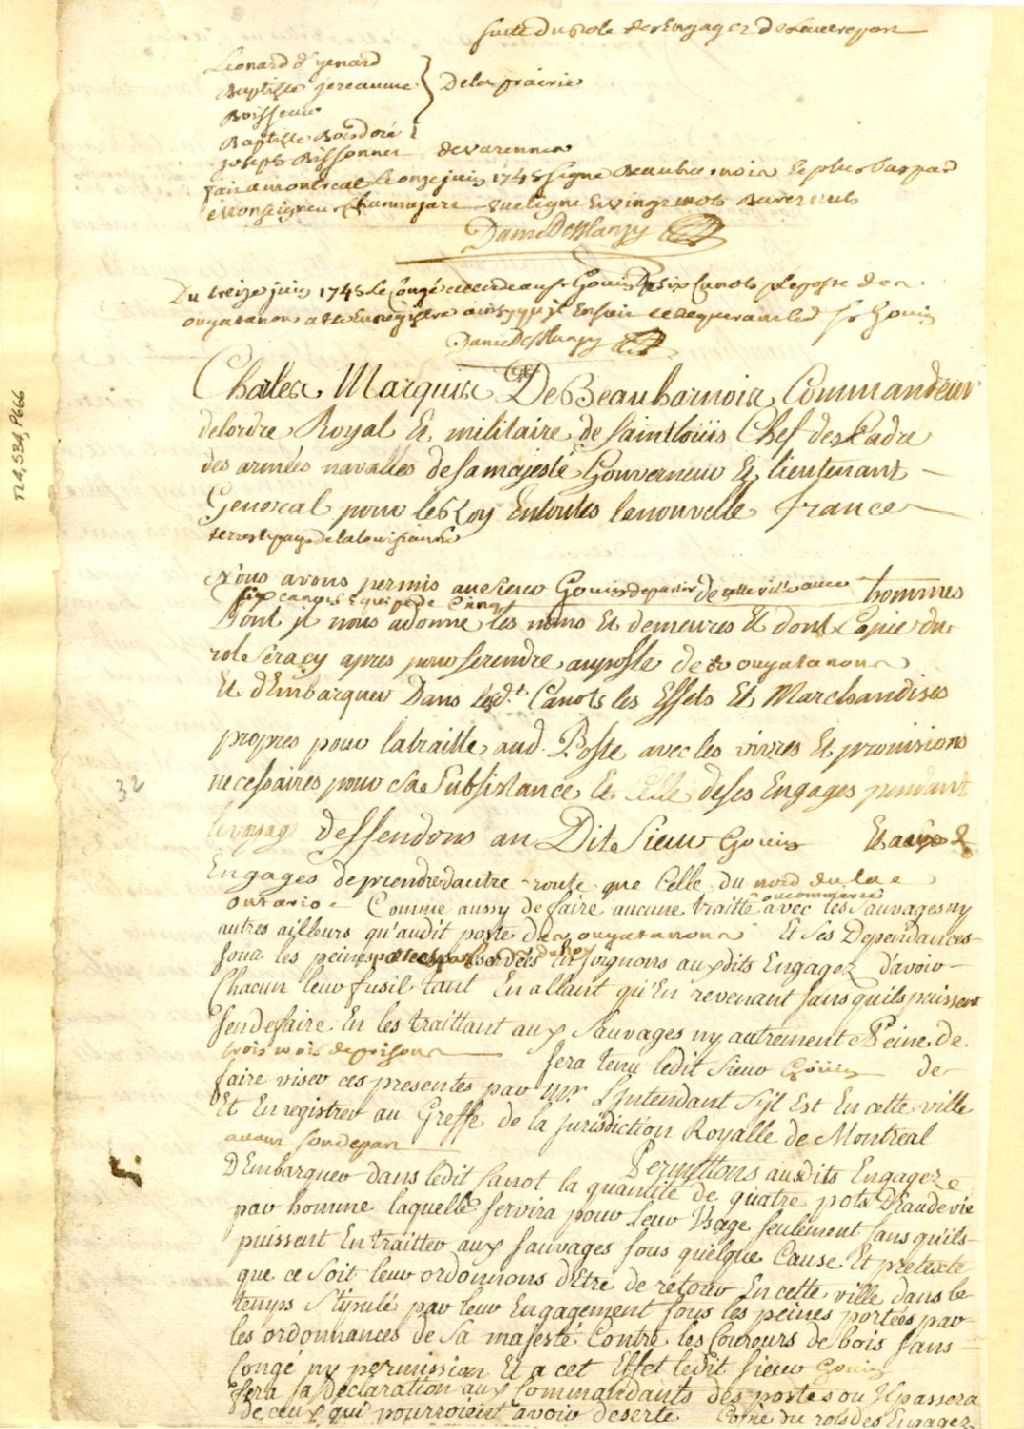 Suitte du role des Engagez de
Leonard d'
Baptiste } De la prairie
Boisseau
Baptiste Boisdoré
Joseph Bissonnet de Varennes
fait a montreal le onze juin 1745 signé Beauharnois Et plus bas par
Monseigneur une ligne Et vingt mots Rayez nuls
Danré De Blanzy
Du treize juin 1745 Le Congé accordé au Sr Goüin six Canots p le poste des
ouyatanons a Eté Enregistré ledit Sr Goüin
Danré De Blanzy
Charles Marquis De Beauharnois Commandeur
de lordre Royal Et militaire de Saint Loüis Chef des Cadre
des armées navalles de sa majesté Gouverneur Et lieutenant
General pour le Roy En toutes la nouvelle france
terres et pays de la louisianne
Nous avons permis au Sieur Goüin de partir de cette ville avec hommes
six canots Equipé de Cinq
Dont jl nous a donné les noms Et demeures Et dont Copie du
role Sera cy apres pour se rendre au poste de ouyatanons
Et d'Embarquer Dans lesdt. Canots les Effets Et Marchandises
propres pour la traitte aud. Poste avec les vivres Et provisions
necessaires pour sa Subsistance Et celle de ses Engages pendant
le voyage deffendons au Dit Sieur Goüin Et a ses
Engages de prendre d'autre route que Celle du nord du lac
ontario Comme aussy de faire aucune traitte ou commerce avec les Sauvages ny
autres ailleurs qu'audit poste des ouyatanons Et Ses Dependances
sous les peines portées par les ordres du Roy Enjoignons auxdits Engagez d'avoir
Chacun leur fusil tant En allant qu'En revenant sans quils puissent
sen defaire En les traittant aux Sauvages ny autrement a Peine de
trois mois de prison Sera tenu ledit Sieur Goüin de
faire viser ces presentes par Mr. L'Intendant S'jl Est En cette ville
Et Enregistrer au Greffe de la jurisdiction Royalle de Montreal
avant son depart
Permettons auxdits Engagez
D'Embarquer dans ledit Canot la quantité de quatre pots D'Eau de vie
par homme laquelle servira pour leur Usage seulement sans qu'ils
puissent En traitter aux sauvages sous quelque Cause Et pretexte
que ce Soit leur ordonnons d'Etre de retour En cette ville dans le
temps Stipulé par leur Engagement sous les peines portées par
les ordonnances de Sa majesté Contre les Coureurs de bois sans
Congé ny permission Et a cet Effet ledit Sieur Goüin
fera sa declaration aux Commandants des postes ou Il passera
de ceux qui pourroient avoir deserté Copie du role des Engagez
32